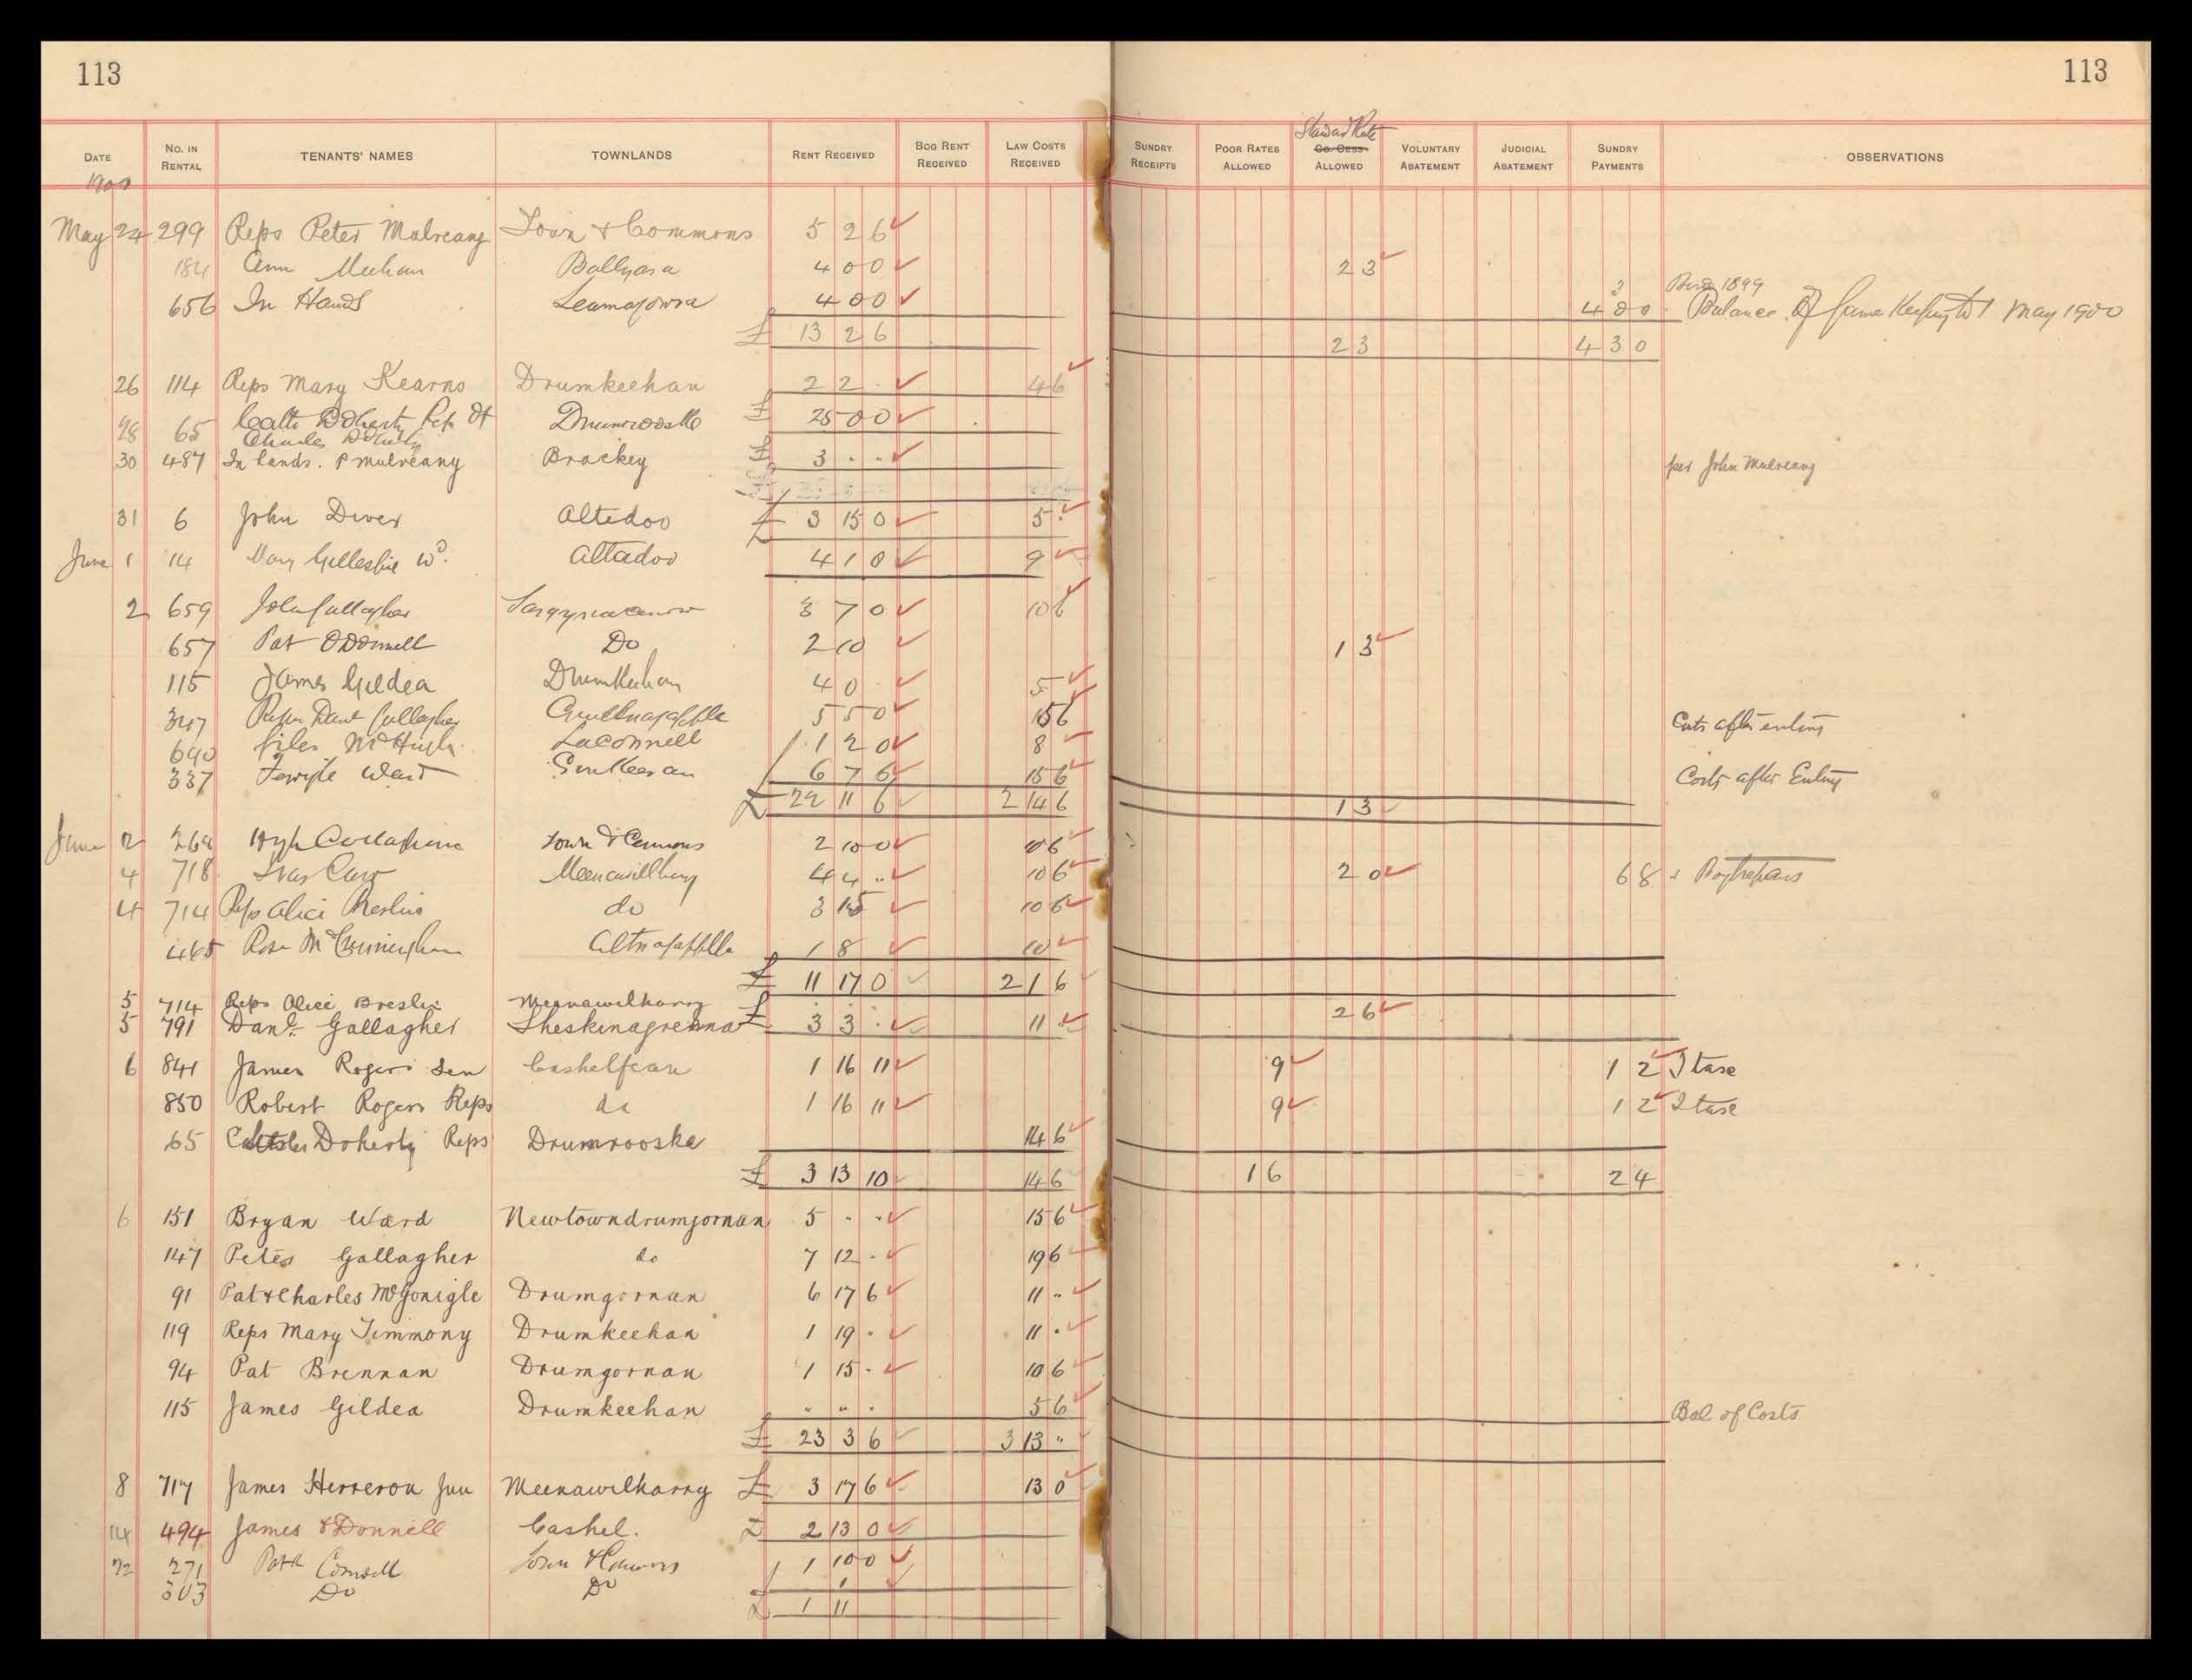 113 113
DATE No. IN RENTAL TENANTS' NAMES TOWNLANDS RENT RECEIVED BOG RENT RECEIVED LAW COSTS RECEIVED SUNDRY RECEIPTS POOR RATES ALLOWED Co. Cess ALLOWED VOLUNTARY ABATEMENT JUDICIAL ABATEMENT SUNDRY PAYMENTS OBSERVATIONS
1900
May 24 299 Reps Peter Mulreany Town & Commons 5 2 6
184 Ann Meehan 4 0 0 2 3
3 1899
656 In Hands 4 0 0 4 0 0 Balance of May 1900
£ 13 2 6 2 3 4 3 0
26 114 Reps Mary Kearns Drumkeehan 2 2 . 4 6
28 65 Doherty Rep of Drumrooske £ 25 0 0
Charles Doherty
30 487 In hands. P Mulreany Brackey £ 3 . . per John Mulreany
31 6 John Diver Altedoo £ 3 15 0 5 .
June 1 14 Mary Gillespie Wd. Altadoo 4 1 0 9
2 659 John Gallagher 3 7 0 10 6
657 Pat O'Donnell Do 2 10 1 3
115 James Gildea Drumkeehan 4 0 . 5
347 Gallagher 5 5 0 15 6 Costs after entering
690 Giles McHugh Laconnell 1 2 0 8
337 Ward 6 7 6 15 6 Costs after Entry
£ 22 11 6 2 14 6 1 3
June 2 Hugh Town & Commons 2 10 0 10 6
4 718 Meenawilharry 4 4 .. 10 6 2 0 6 8
4 714 Reps Alice Breslin do 3 15 10 6
465 Rose McCunningham Altnagapple 1 8 10
£ 11 17 0 2 1 6
5 714 Reps Alice Breslin Meenawilharry . . 2 6
5 791 Danl. Gallagher Sheskinagrenna £ 3 3 . 11 .
6 841 James Rogers Sen Cashelfean 1 16 11 9 1 2 I tax
850 Robert Rogers Reps do 1 16 11 9 1 2 I tax
65 Doherty Reps Drumrooske 14 6
£ 3 13 10 14 6 1 6 2 4
6 151 Bryan Ward Newtowndrumgornan 5 . . 15 6
147 Peter Gallagher do 7 12 . 19 6
91 Pat & Charles McGonigle Drumgornan 6 17 6 11 ..
119 Reps Mary Timmony Drumkeehan 1 19 . 11 .
94 Pat Brennan Drumgornan 1 15 . 10 6
115 James Gildea Drumkeehan " " . 5 6 Bal of Costs
£ 23 3 6 3 13 "
8 717 James Herreron Jun Meenawilharry £ 3 17 6 13 0
14 494 James O'Donnell Cashel. £ 2 13 0
22 271 Patk Town & Commons 1 10 0
303 Do Do 1
£ 1 11